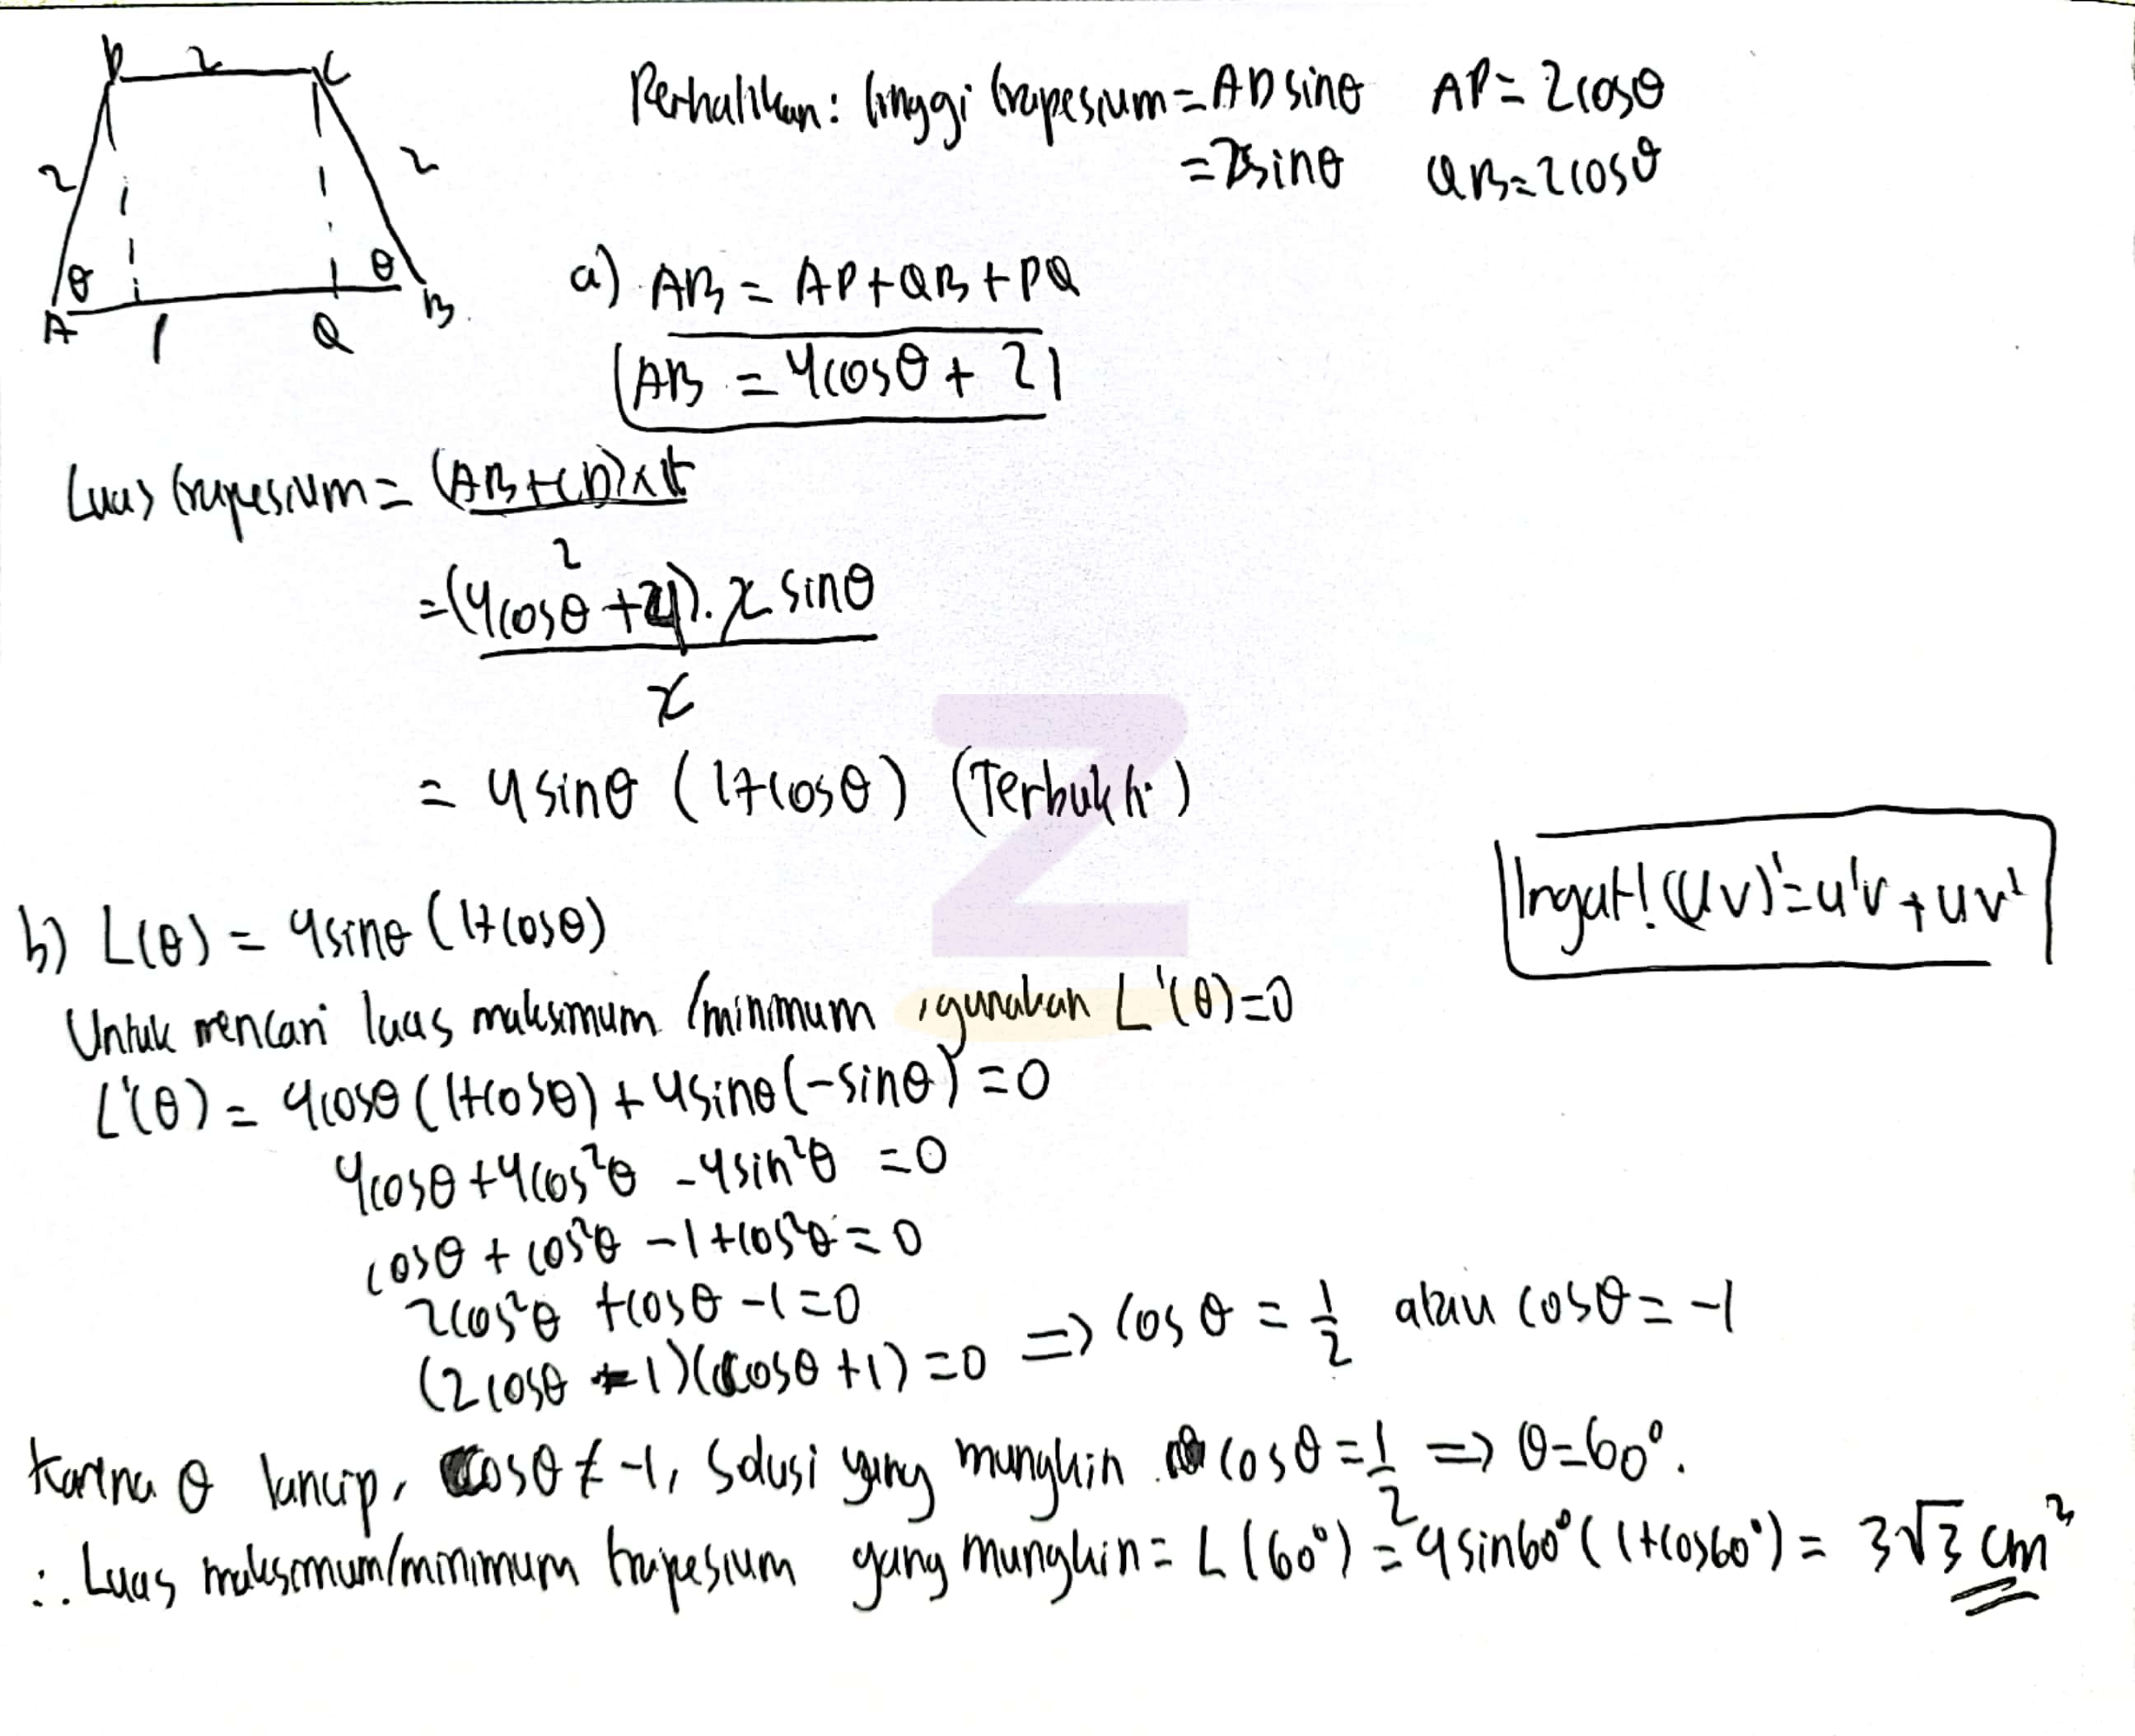 D 2 C
2 2
θ θ
A P Q B
Perhatikan: tinggi trapesium = AD sinθ AP = 2cosθ
= 2sinθ QB = 2cosθ
a) AB = AP + QB + PQ
AB = 4cosθ + 2
Luas trapesium = (AB+CD)×t
2
= (4cosθ + 4). 2 sinθ
2
= 4sinθ (1+cosθ) (Terbukti)
Ingat! (UV)' = u'v + uv'
b) L(θ) = 4sinθ (1+cosθ)
Untuk mencari luas maksimum/minimum, gunakan L'(θ)=0
L'(θ) = 4cosθ (1+cosθ) + 4sinθ(-sinθ) = 0
4cosθ + 4cos²θ - 4sin²θ = 0
cosθ + cos²θ - 1 + cos²θ = 0
2cos²θ + cosθ - 1 = 0
(2cosθ - 1)(cosθ + 1) = 0 => cosθ = 1/2 atau cosθ = -1
Karena θ lancip, cosθ ≠ -1, solusi yang mungkin cosθ = 1/2 => θ = 60°.
∴ Luas maksimum/minimum trapesium yang mungkin = L(60°) = 4sin60° (1+cos60°) = 3√3 cm²
Z